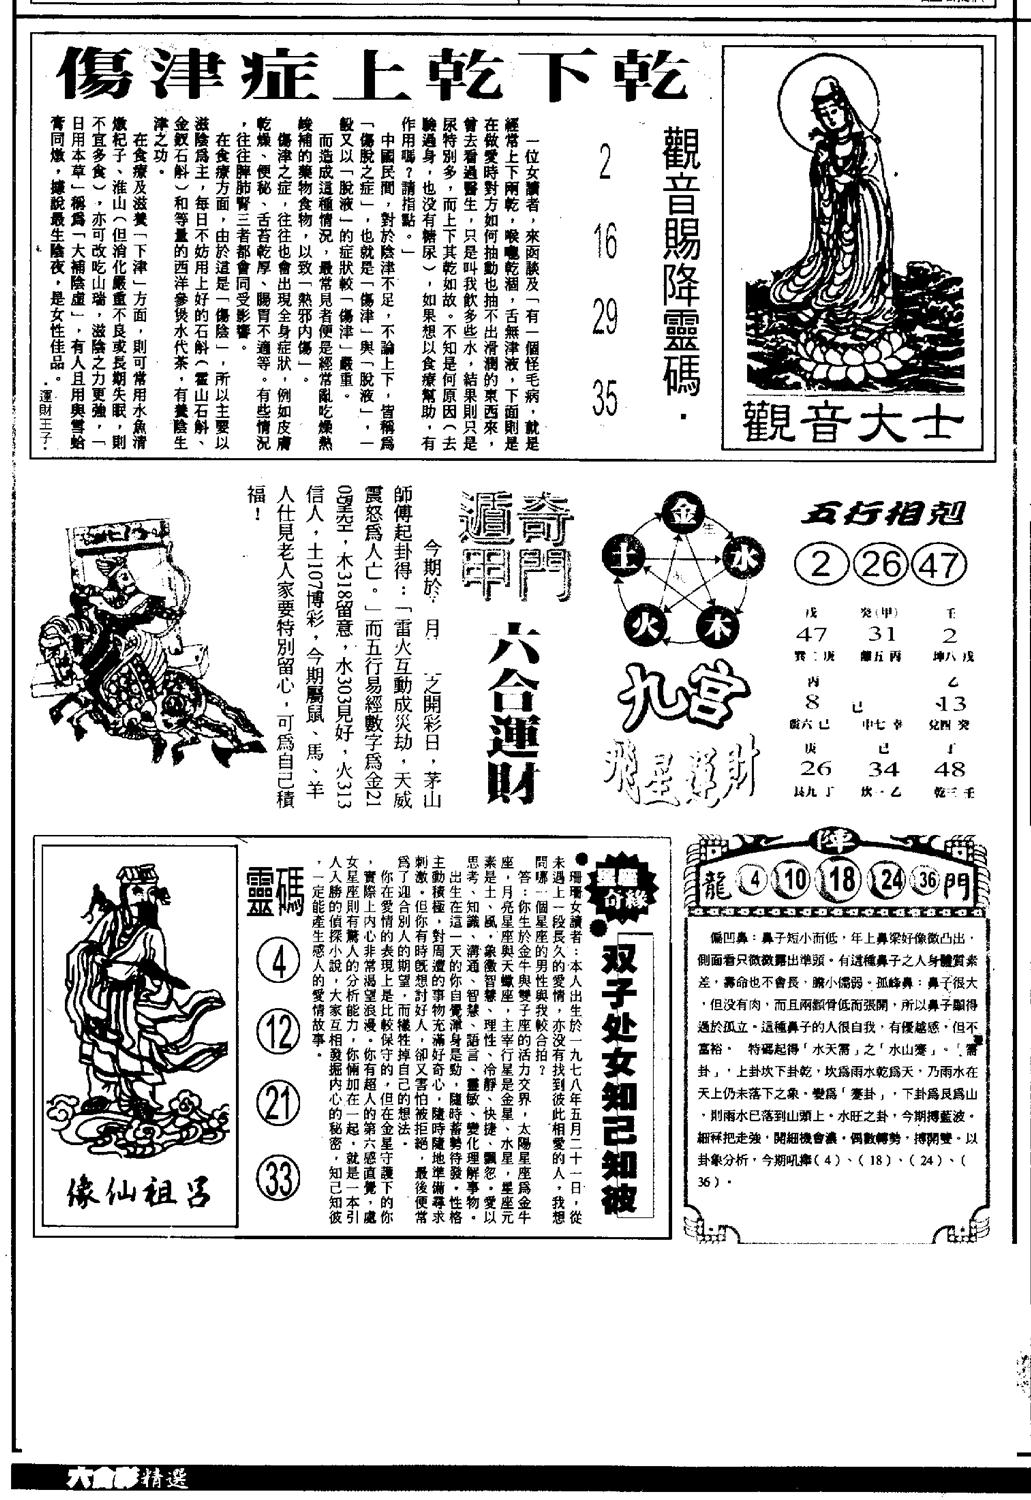 乾下乾上症津傷
觀音賜降靈碼．
2
16
29
35
觀音大士
一位女讀者，來函談及「有一個怪毛病，就是
經常上下兩乾，喉嚨乾涸，舌無津液，下面則是
在做愛時對方如何抽動也抽不出滑潤的東西來，
曾去看過醫生，只是叫我飲多些水，結果則只是
尿特別多，而上下其乾如故。不知是何原因（去
驗過身，也没有糖尿），如果想以食療幫助，有
作用嗎？請指點。」
中國民間，對於陰津不足，不論上下，皆稱爲
「傷脫之症」，也就是「傷津」與「脫液」，一
般又以「脫液」的症狀較「傷津」嚴重。
而造成這種情況，最常見者便是經常亂吃燥熱
峻補的藥物食物，以致「熱邪内傷」。
傷津之症，往往也會出現全身症狀，例如皮膚
乾燥、便秘、舌苔乾厚、腸胃不適等。有些情況
，往往脾肺腎三者都會同受影響。
在食療方面，由於這是「傷陰」，所以主要以
滋陰爲主，每日不妨用上好的石斛（霍山石斛、
金釵石斛）和等量的西洋參煲水代茶，有養陰生
津之功。
在食療及滋養「下津」方面，則可常用水魚清
燉杞子、淮山（但消化嚴重不良或長期失眠，則
不宜多食），亦可改吃山瑞，滋陰之力更強，「
日用本草」稱爲「大補陰虛」，有人且用與雪蛤
膏同燉，據說最生陰液，是女性佳品。
．運財王子．
五行相剋
2 26 47
金
水
木
火
土
生
戊 癸(甲) 壬
47 31 2
巽二庚 離五丙 坤八戊
丙 乙
8 已 13
震六已 中七辛 兌四癸
庚 已 丁
26 34 48
艮九丁 坎一乙 乾三壬
九宮
飛星運財
奇門
遁甲
六合運財
今期於 月 之開彩日，茅山
師傅起卦得：「雷火互動成災劫，天威
震怒爲人亡。」而五行易經數字爲金21
木318留意，水303見好，火313
信人，土107博彩，今期屬鼠、馬、羊
人仕見老人家要特別留心，可爲自己積
福！
陣
龍 4 10 18 24 36 門
偏凹鼻：鼻子短小而低，年上鼻梁好像微凸出，
側面看只微微露出準頭。有這種鼻子之人身體質素
差，壽命也不會長，膽小儒弱。孤峰鼻：鼻子很大
，但没有肉，而且兩顴骨低而張開，所以鼻子顯得
過於孤立。這種鼻子的人很自我，有優越感，但不
富裕。 特碼起得「水天需」之「水山蹇」。「需
卦」，上卦坎下卦乾，坎爲雨水乾爲天，乃雨水在
天上仍未落下之象。變爲「蹇卦」，下卦爲艮爲山
，則雨水已落到山頭上。水旺之卦，今期搏藍波。
細冧把走強，開細機會濃。偶數轉勢，搏開雙。以
卦象分析，今期吼捧（4）、（18）、（24）、（
36）。
星座
奇緣
双子处女知己知彼
珊珊女讀者：本人出生於一九七八年五月二十一日，從
未遇上一段長久的愛情，亦没有找到彼此相愛的人，我想
問哪一個星座的男性與我較合拍？
答：你生於金牛與雙子座的活力交界，太陽星座爲金牛
座，月亮星座與天蠍座，主宰行星是金星、水星，星座元
素是土、風，象徵智慧、理性、冷靜、快捷、飄忽。愛以
思考、知識、溝通、智慧、語言、靈敏、變化理解事物。
出生在這一天的你自覺渾身是勁，隨時蓄勢待發。性格
主動積極，對周遭的事物充滿好奇心，隨時隨地準備尋求
刺激。但你有時既想討好人，卻又害怕被拒絕，最後便常
爲了迎合別人的期望，而犧牲掉自己的想法。
你在愛情的表現上是比較保守的，但在金星守護下的你
，實際上內心非常渴望浪漫。你有超人的第六感直覺，處
女星座則有驚人的分析能力，你倆加在一起，就是一本引
人入勝的偵探小說，大家互相發掘内心的秘密，知己知彼
，一定能產生感人的愛情故事。
靈碼
4
12
21
33
呂祖仙像
六合彩精選